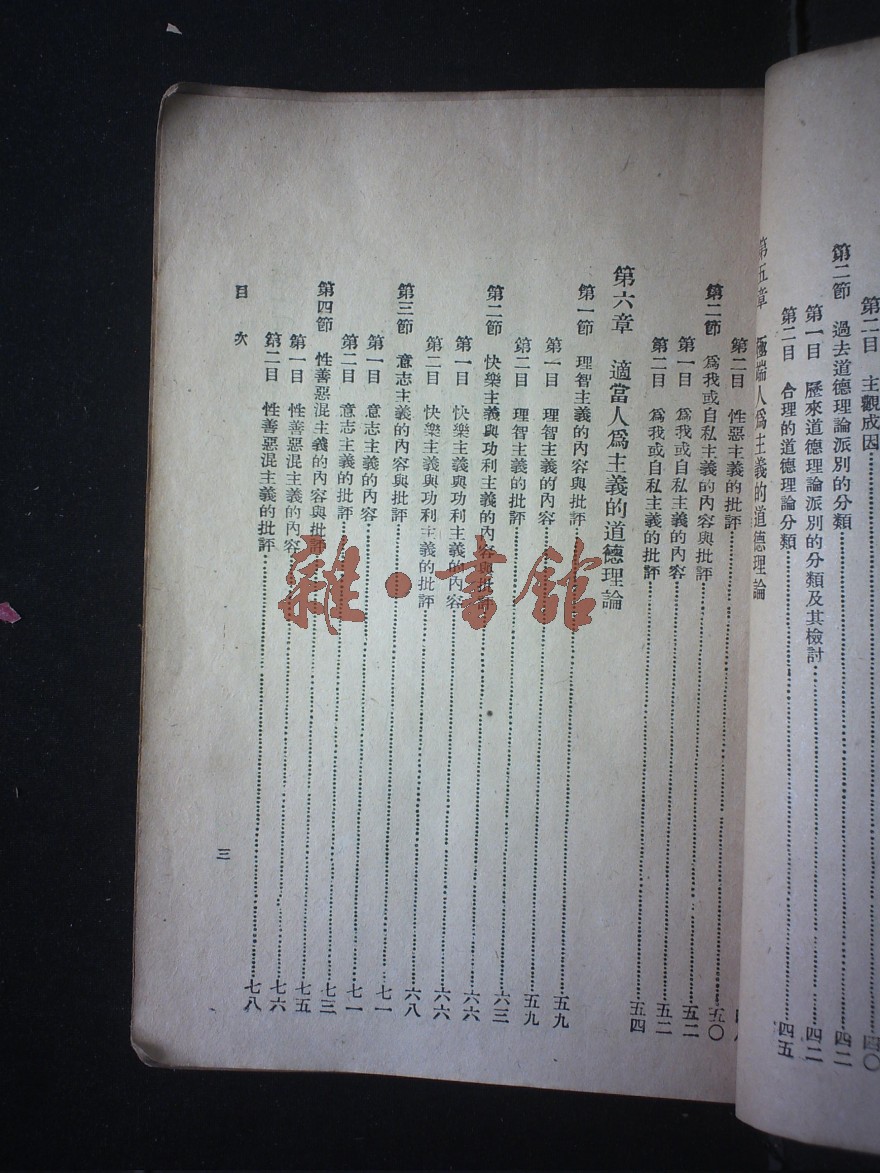 第二目 主觀成因……四〇
第二節 過去道德理論派別的分類……四二
第一目 歷來道德理論派別的分類及其檢討……四二
第二目 合理的道德理論分類……四五
第五章 極端人爲主義的道德理論
第二目 性惡主義的批評……五〇
第二節 爲我或自私主義的內容與批評……五二
第一目 爲我或自私主義的內容……五二
第二目 爲我或自私主義的批評……五四
第六章 適當人爲主義的道德理論
第一節 理智主義的內容與批評……五九
第一目 理智主義的內容……五九
第二目 理智主義的批評……六三
第二節 快樂主義與功利主義的內容與批評……六六
第一目 快樂主義與功利主義的內容……六六
第二目 快樂主義與功利主義的批評……六八
第三節 意志主義的內容與批評……七一
第一目 意志主義的內容……七一
第二目 意志主義的批評……七三
第四節 性善惡混主義的內容與批評……七五
第一目 性善惡混主義的內容……七六
第二目 性善惡混主義的批評……七八
目次
三
雜·書館